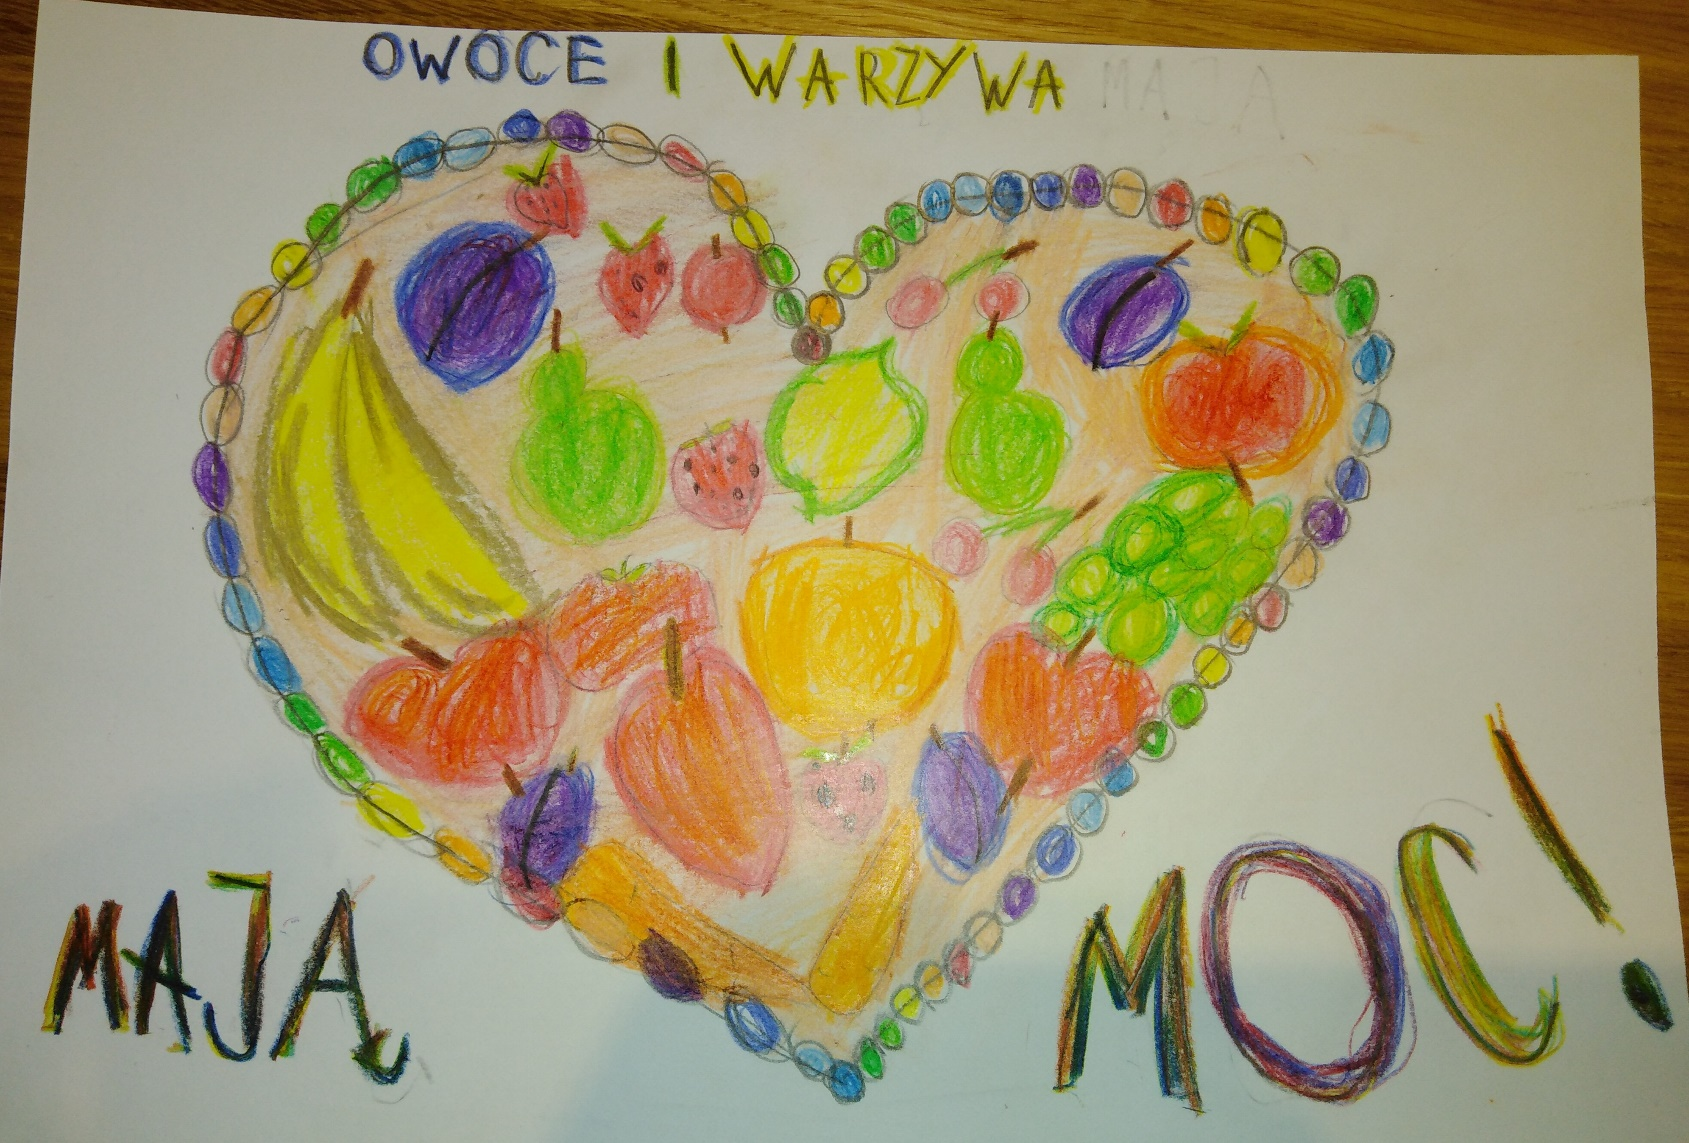 OWOCE I WARZYWA MAJA
MAJĄ MOC!